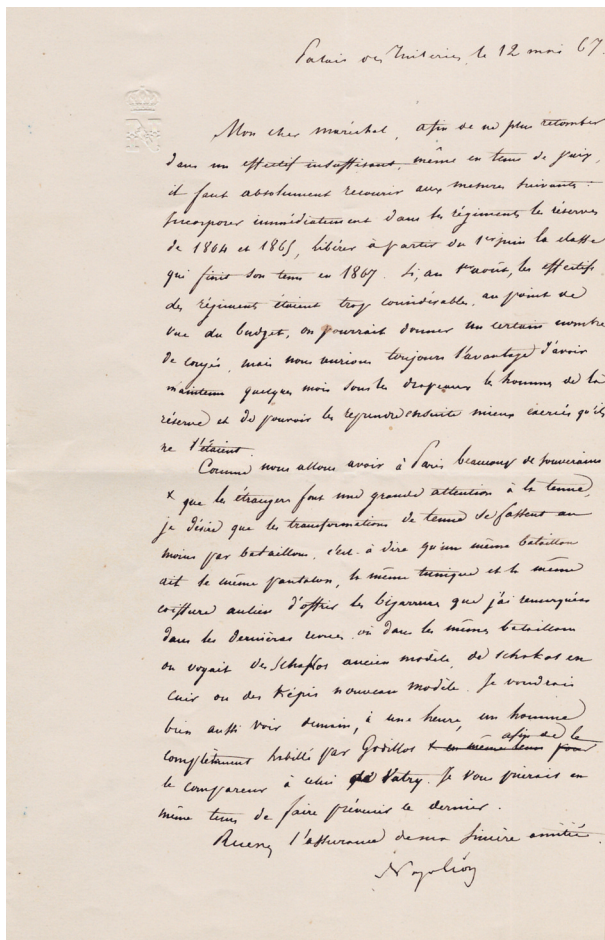 Palais des Tuileries, le 12 mai 67.
N
Mon cher maréchal, afin de ne plus retomber
dans un effectif insuffisant, même en tems de paix,
il faut absolument recourir aux mesures suivantes :
Incorporer immédiatement dans les régiments les réserves
de 1864 et 1865, libérer à partir du 1er juin la classe
qui finit son tems en 1867. Si, au 1er août, les effectifs
des régiments étaient trop considérables, au point de
vue du budget, on pourrait donner un certain nombre
de congés, mais nous aurions toujours l'avantage d'avoir
maintenu quelques mois sous les drapeaux les hommes de la
réserve et de pouvoir les reprendre ensuite mieux exercés qu'ils
ne l'étaient.
Comme nous allons avoir à Paris beaucoup de souverains
& que les étrangers font une grande attention à la tenue,
je désire que les transformations de tenue se fassent au
moins par bataillons, c'est-à-dire qu'un même bataillon
ait le même pantalon, la même tunique et la même
coiffure au lieu d'offrir les bigarrures que j'ai remarquées
dans les dernières revues, où dans les mêmes bataillons
on voyait des schakos ancien modèle, de schakos en
cuir ou des képis nouveau modèle. Je voudrais
bien aussi voir demain, à une heure, un homme
complètement habillé par Godillot & en même tems pour afin de le
le comparer à celui de Vatry. Je vous prierais en
même tems de faire prévenir le dernier.
Recevez l'assurance de ma sincère amitié.
Napoléon